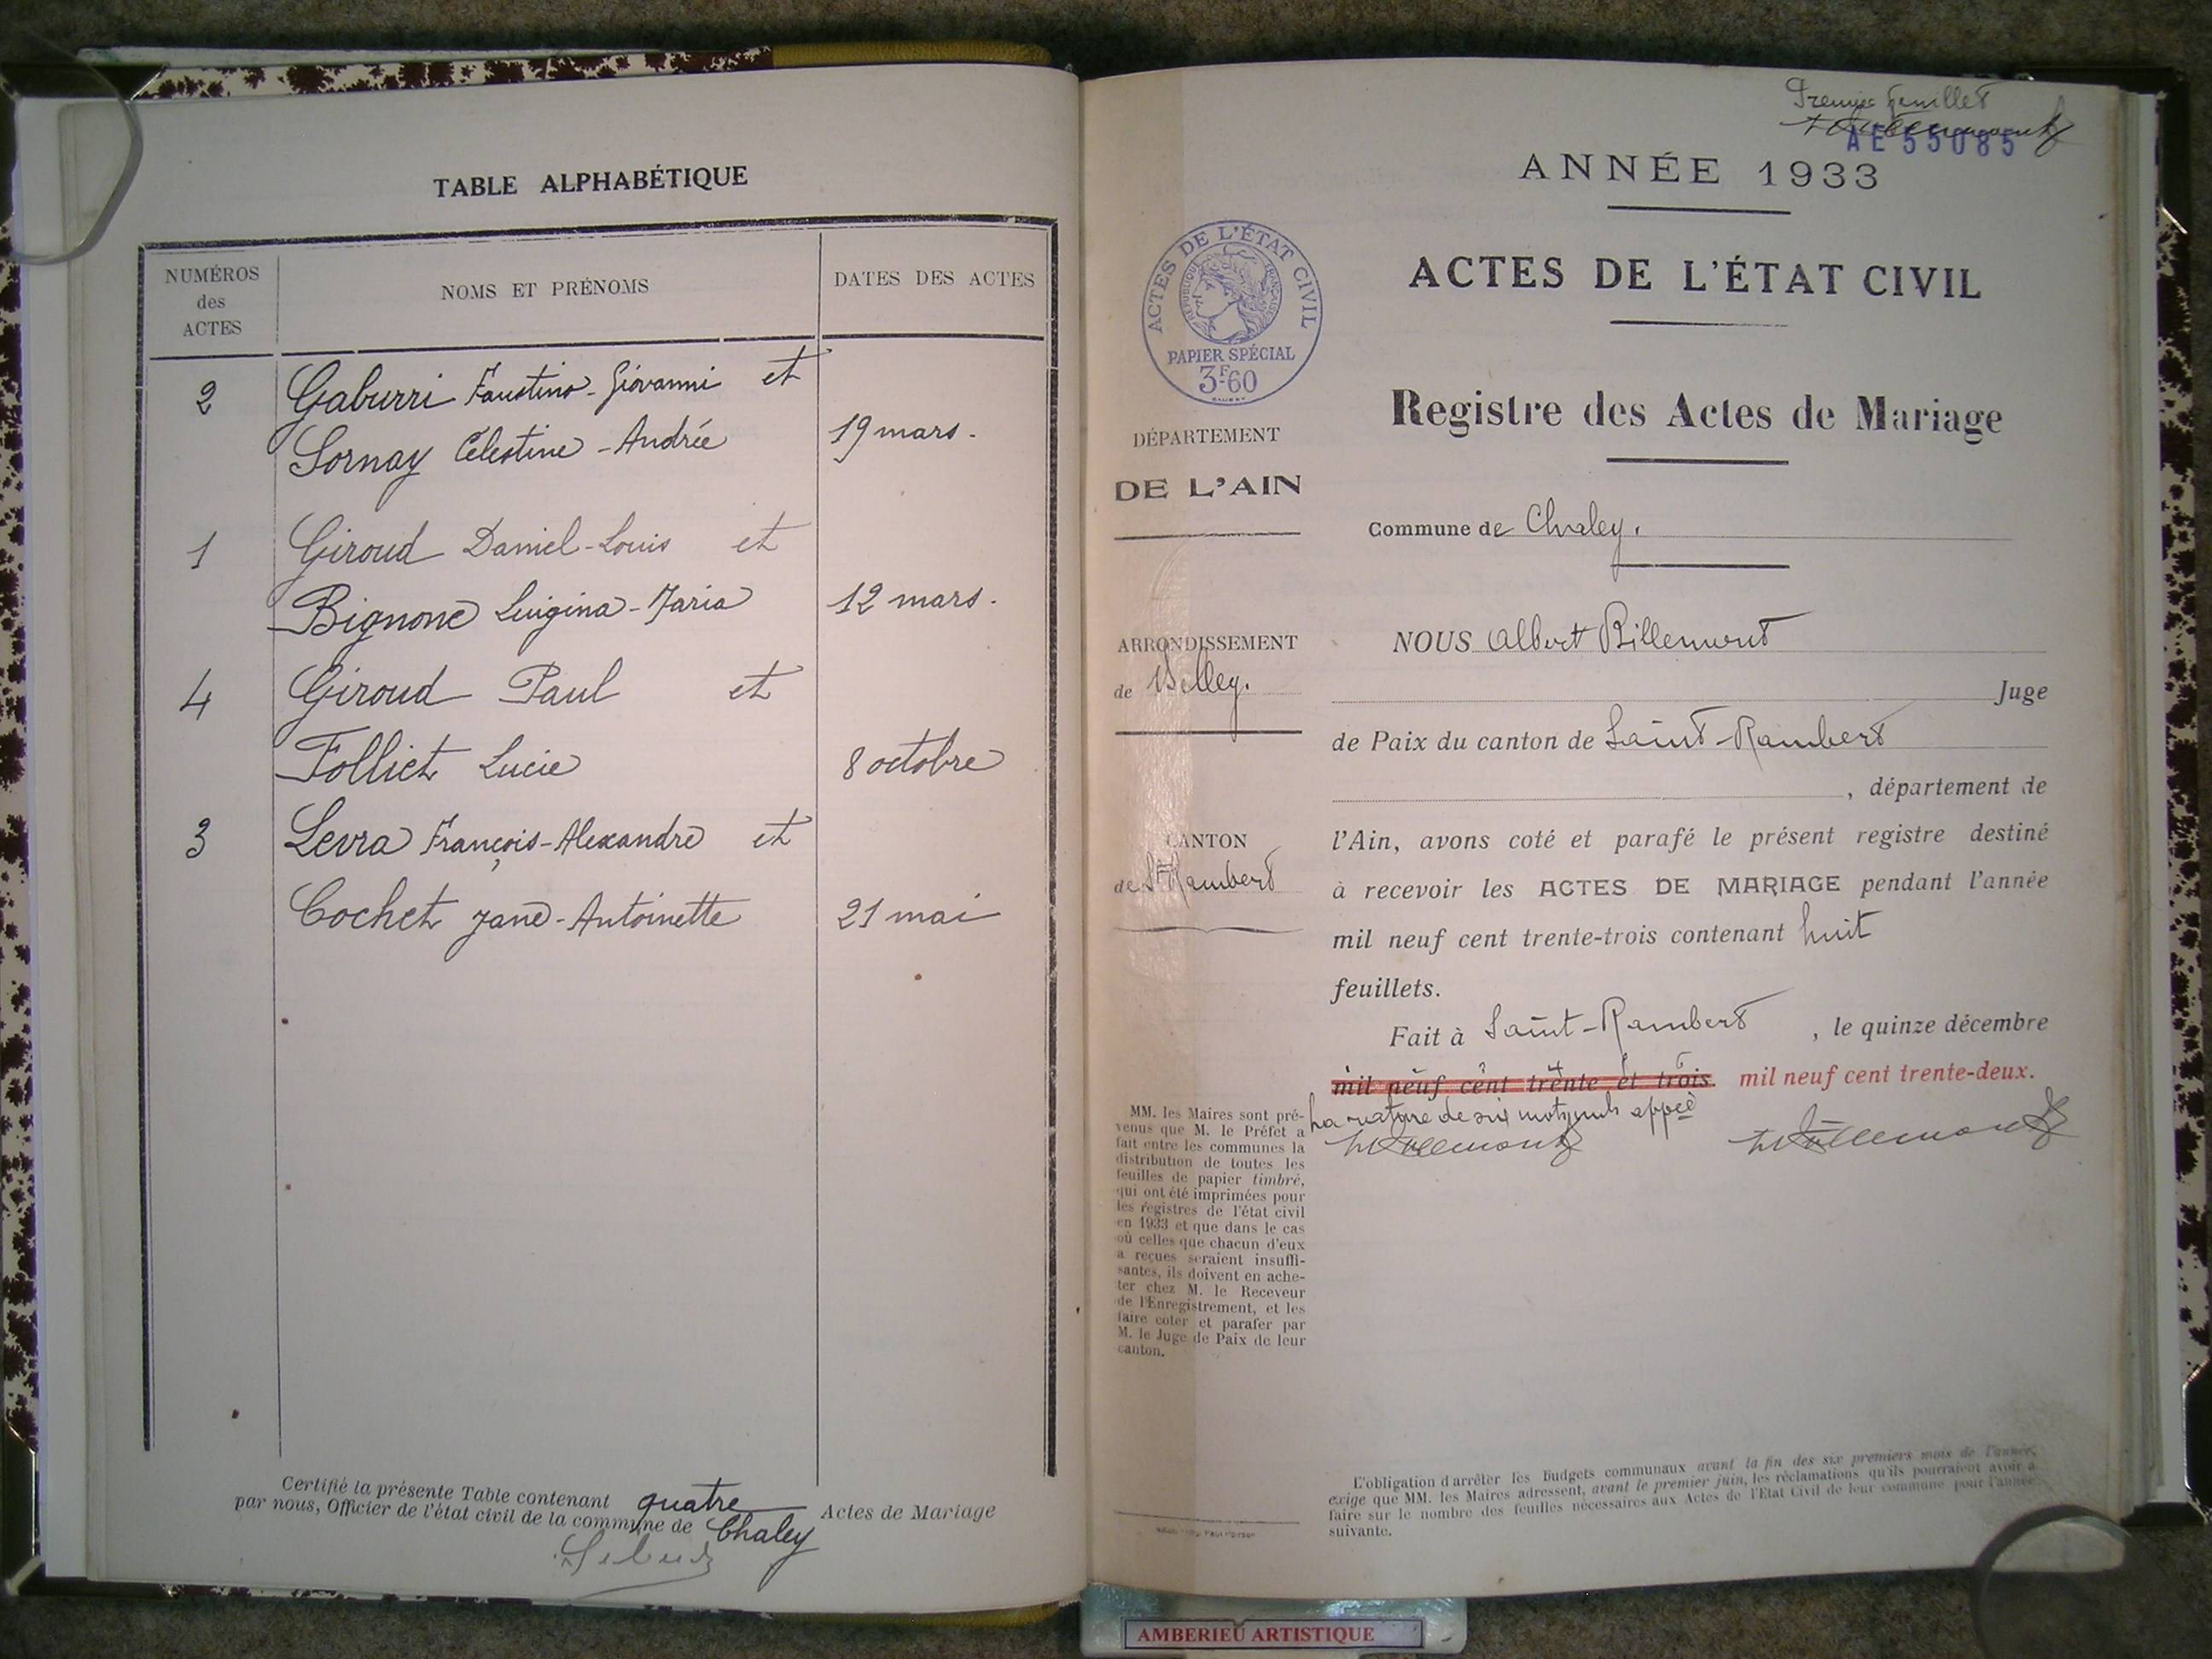 TABLE ALPHABÉTIQUE
NUMÉROS des ACTES
NOMS ET PRÉNOMS
DATES DES ACTES
2 Gaburri Faustino-Giovanni et
Sornay Célestine-Andrée 19 mars.
1 Giroud Daniel-Louis et
Bignone Luigina-Maria 12 mars.
4 Giroud Paul et
Folliet Lucie 8 octobre
3 Levra François-Alexandre et
Cochet Jane-Antoinette 21 mai
Certifié la présente Table contenant quatre Actes de Mariage
par nous, Officier de l'état civil de la commune de Chaley
Premier feuillet
AE 55085
ANNÉE 1933
ACTES DE L'ÉTAT CIVIL
RÉPUBLIQUE FRANÇAISE
PAPIER SPÉCIAL
3F60
ACTES DE L'ÉTAT CIVIL
Registre des Actes de Mariage
DÉPARTEMENT
DE L'AIN
Commune de Chaley.
ARRONDISSEMENT
de Belley.
CANTON
de St Rambert
NOUS Albert Billemont
Juge
de Paix du canton de Saint-Rambert
, département de
l'Ain, avons coté et parafé le présent registre destiné
à recevoir les ACTES DE MARIAGE pendant l'année
mil neuf cent trente-trois contenant huit
feuillets.
Fait à Saint-Rambert , le quinze décembre
mil neuf cent trente et trois. mil neuf cent trente-deux.
La rature de six mots nuls
MM. les Maires sont pré-
venus que M. le Préfet a
fait entre les communes la
distribution de toutes les
feuilles de papier timbré,
qui ont été imprimées pour
les registres de l'état civil
en 1933 et que dans le cas
où celles que chacun d'eux
a reçues seraient insuffi-
santes, ils doivent en ache-
ter chez M. le Receveur
de l'Enregistrement, et les
faire coter et parafer par
M. le Juge de Paix de leur
canton.
L'obligation d'arrêter les Budgets communaux avant la fin des six premiers mois de l'année,
exige que MM. les Maires adressent, avant le premier juin, les réclamations qu'ils pourraient avoir à
faire sur le nombre des feuilles nécessaires aux Actes de l'Etat Civil de leur commune pour l'année
suivante.
AMBERIEU ARTISTIQUE